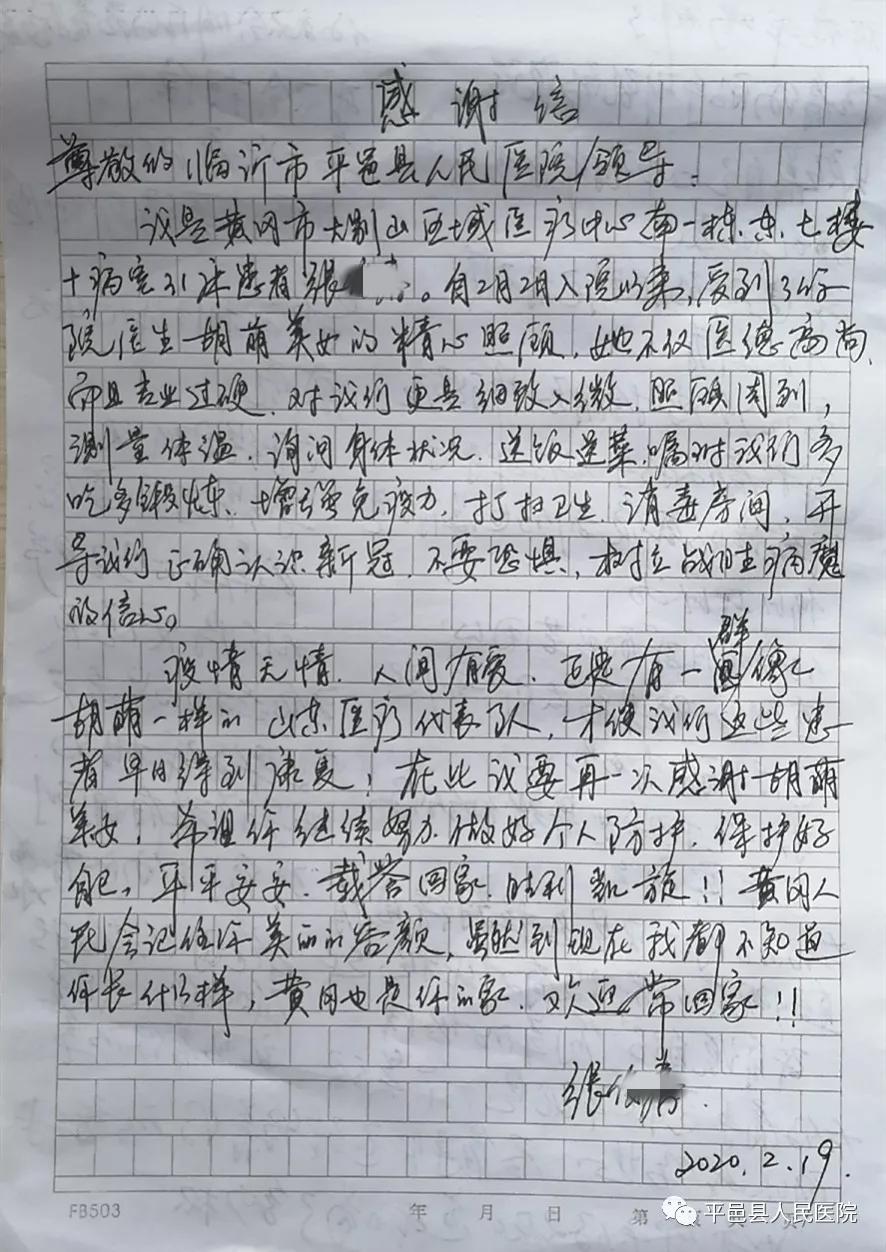 感谢信
尊敬的临沂市平邑县人民医院领导:
我是黄冈市大别山区域医疗中心南一栋、东、七楼
十病室31床患者张。自2月2日入院以来,受到你
院医生胡萌美女的精心照顾,她不仅医德高尚,
而且专业过硬,对我们更是细致入微,照顾周到,
测量体温、询问身体状况、送饭送菜,嘱咐我们多
吃多锻炼、增强免疫力,打扫卫生、消毒房间,开
导我们正确认识新冠,不要恐惧,树立战胜病魔
的信心。
疫情无情,人间有爱,正是有一群像
胡萌一样的山东医疗代表队,才使我们这些患
者早日得到康复!在此我要再一次感谢胡萌
美女!希望你继续努力做好个人防护,保护好
自己,平平安安、载誉回家、胜利凯旋!!黄冈人
民会记住你美丽的容颜,虽然到现在我都不知道
你长什么样,黄冈也是你的家,欢迎常回家!!
张
2020.2.19.
FB503 年 月 日 第 页
平邑县人民医院